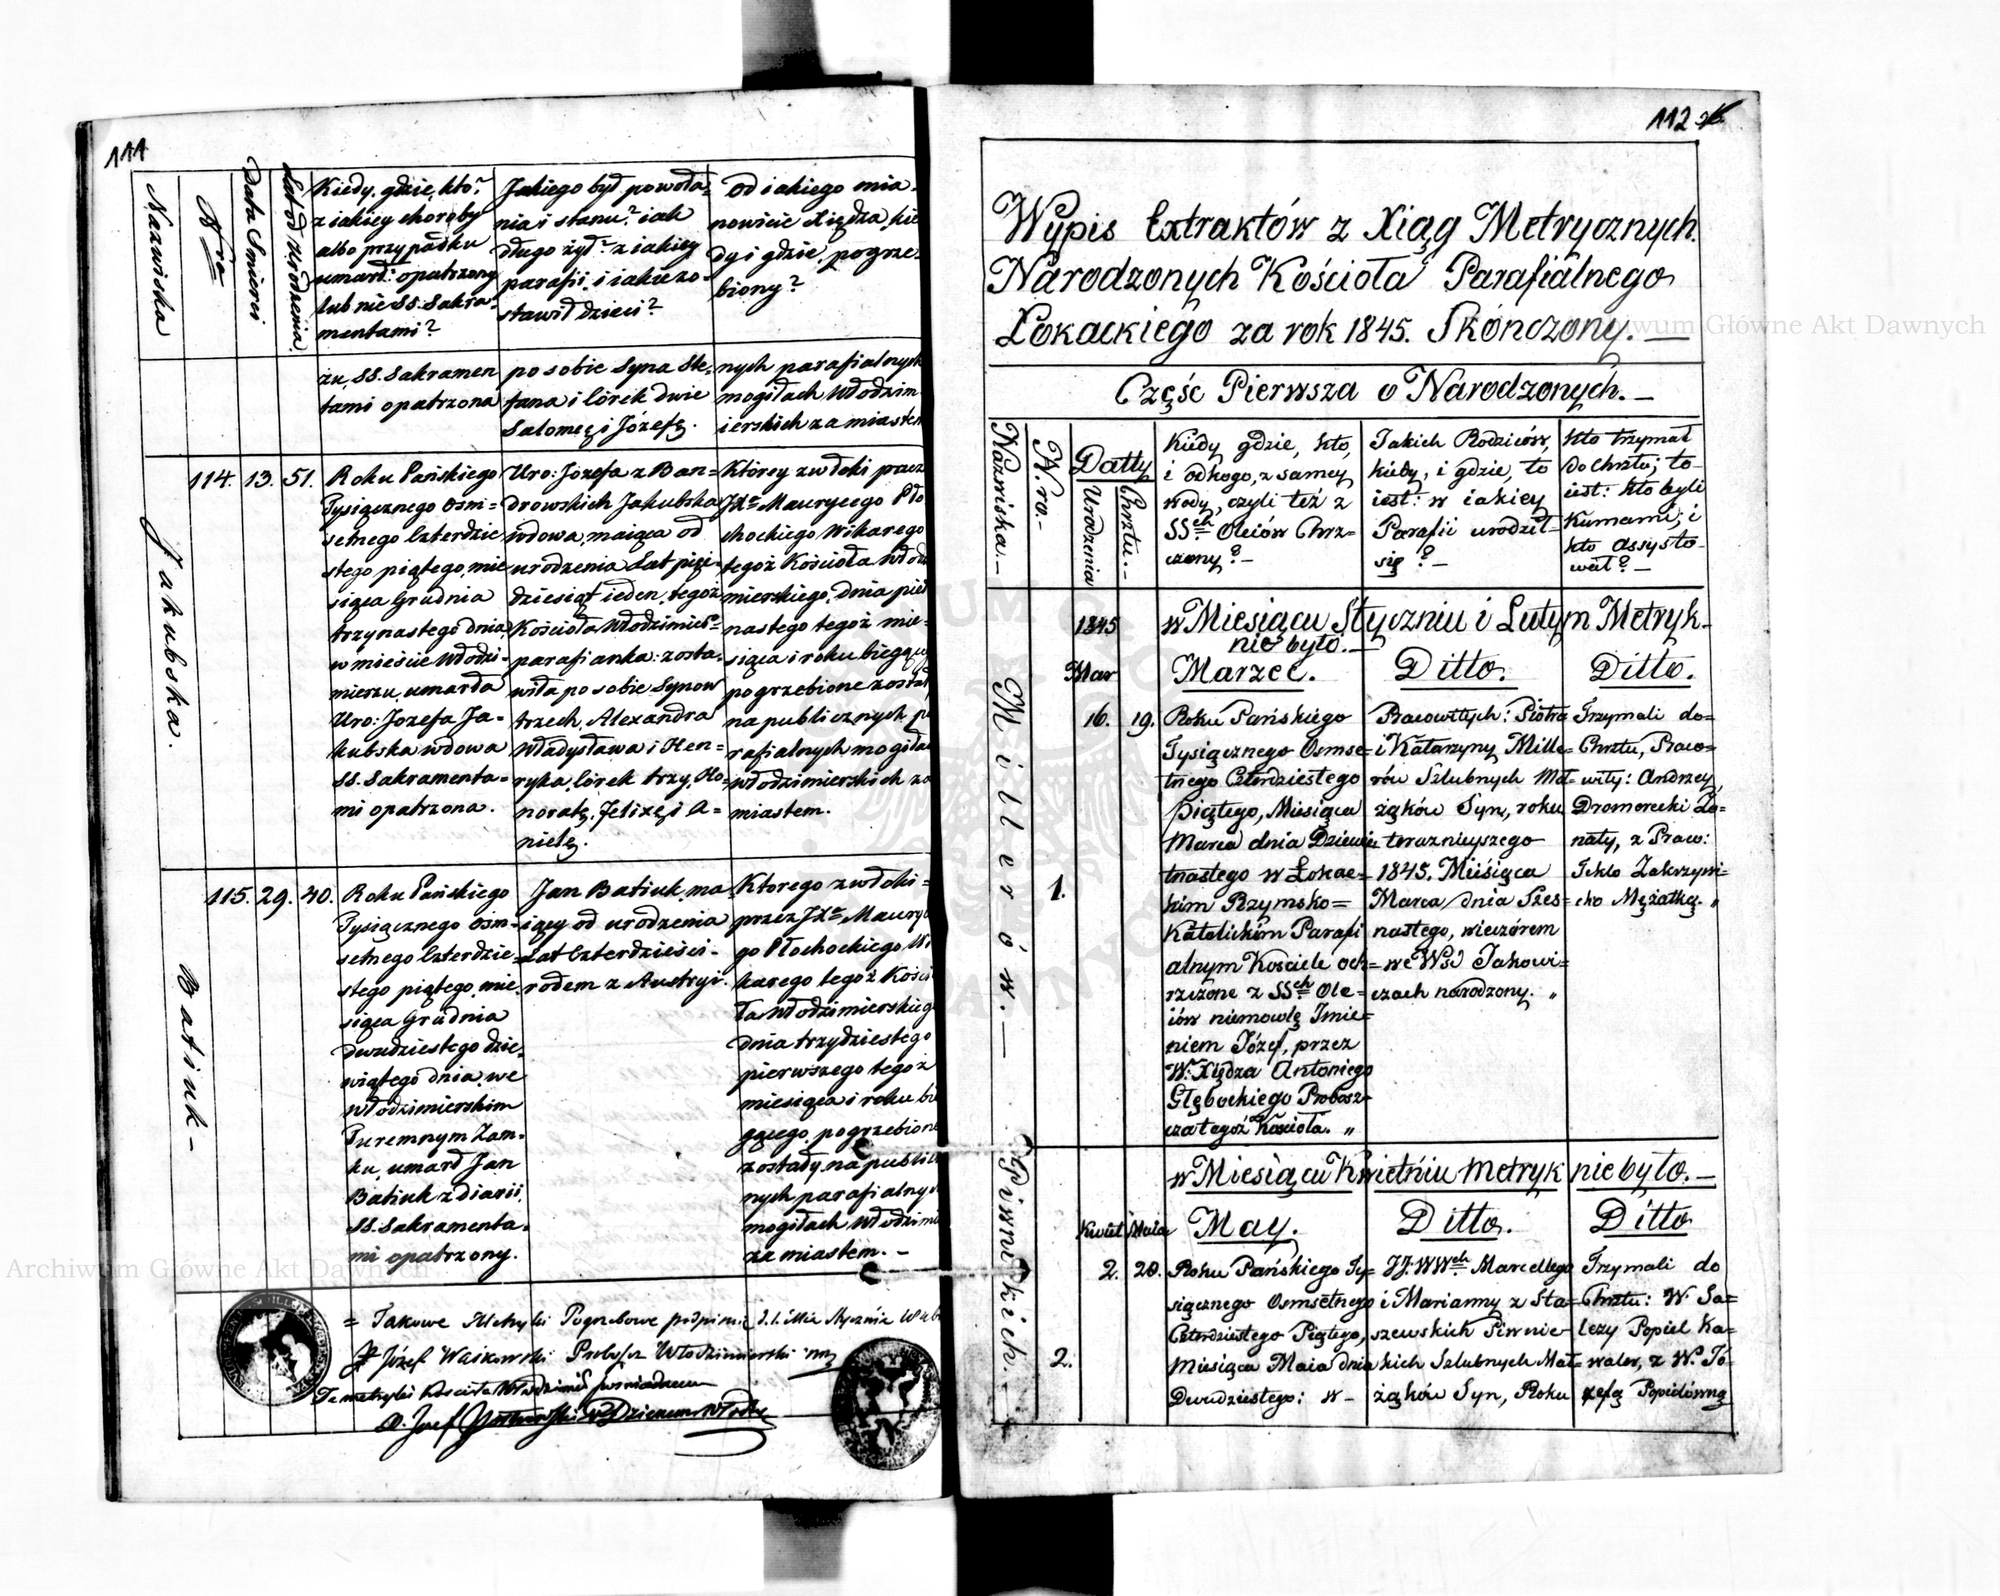 111
Nazwiska
Nro
Data Smierci
Lat od Urodzenia
Kiedy, gdzie, kto?
z iakiey choroby
albo przypadku
umarł: opatrzony
lub nie SS. Sakra-
mentami?
Jakiego był powoła-
nia i stanu? iak
długo żył? z iakiey
parafii, i iakie zo-
stawił dzieci?
od iakiego mia-
nowicie Xiędza, kie
dy i gdzie, pogrze-
biony?
żu, SS. Sakramen
tami opatrzona
po sobie Syna Ste-
fana i Córek dwie
Salomeę i Józefę.
nych parafialnych
mogiłach Włodzim
ierskich za miastem
Jakubska.
114. 13. 51.
Roku Pańskiego
Tysiącznego osm-
setnego Czterdzie
stego piątego, mie
siąca Grudnia
trzynastego dnia
w mieście Włodzi-
mierzu umarła
Uro: Jozefa Ja-
kubska wdowa
SS. Sakramenta-
mi opatrzona.
Uro: Józefa z Ban-
drowskich Jakubska
wdowa, maiąca od
urodzenia Lat pięć-
dziesiąt ieden, tegoż
Kościoła Włodzimier-
parafianka: zosta-
wiła po sobie Synow
trzech, Alexandra
Władysława i Hen-
ryka, Córek trzy, Ho-
noratę, Felixę i A-
nielę.
Którey zwłoki przez
JXa Maurycego Pło
chockiego Wikarego
tegoż Kościoła Włodz
mierskiego, dnia pięt
nastego tegoż mie-
siąca i roku biegący
pogrzebione został
na publicznych pa
rafialnych mogiłac
włodzimierskich za
miastem.
Batiuk-
115. 29. 40.
Roku Pańskiego
Tysiącznego osm-
setnego Czterdzie-
stego piątego, mie
siąca Grudnia
dwudziestego dzie-
wiątego dnia, we
włodzimierskim
Turemnym Zam-
ku, umarł Jan
Batiuk z diarii,
SS. Sakramenta-
mi opatrzony.
Jan Batiuk, ma-
iący od urodzenia
Lat Czterdzieści-
rodem z Austryi.
Ktorego zwłoki-
przez JXa Mauryc
go Płochockiego Wi
karego tegoż Kości
ła Włodzimierskiego
dnia trzydziestego
pierwszego tegoż
miesiąca i roku bi
gącego, pogrzebion
zostały, na publicz
nych parafialnych
mogiłach Włodzimi
za miastem. -
= Takowe Metryki Pogrzebowe podpisuię d. 1. Mca Stycznia 1846
X Józef Waikowski Proboszcz Włodzimierski mp
Te metryki Kościoła Włodzimier poświadczam
112
Wypis Extraktów z Xiąg Metrycznych
Narodzonych Kościoła Parafialnego
Łokackiego za rok 1845. Skończony. —
Część Pierwsza o Narodzonych. —
Nazwiska. -
N.ro. -
Datty
Urodzenia
Chrztu. -
Kiedy gdzie, kto,
i od kogo, z samey
wody, czyli też z
SSch Oleiów Chrz-
czony? -
Jakich Rodziców,
kiedy, i gdzie, to
iest: w iakiey
Parafii urodził-
się? -
Kto trzymał
do Chrztu; to-
iest: kto byli
Kumami; i
kto assysto-
wał? -
1845
w Miesiącu Styczniu i Lutym Metryk-
nie było. -
Mar
Marzec.
Ditto.
Ditto.
Millerów. —
1.
16. 19.
Roku Pańskiego
Tysiącznego Osmse-
tnego Czterdziestego
Piątego, Miesiąca
Marca dnia Dziewię-
tnastego w Łokac-
kim Rzymsko=
Katolickim Parafi
alnym Kościele och-
rzczone z SSch Ole-
iów niemowlę Imie-
niem Józef, przez
W. Xiędza Antoniego
Głębockiego Probosz-
cza tegoż Kościoła. „
Pracowitych: Piotra
i Katarzyny Mille-
rów Szlubnych Mał-
żąków Syn, roku
teraznieyszego
1845. Miesiąca
Marca dnia Szes-
nastego, wieczórem
we Wsi Jakowi-
czach narodzony. „
Trzymali do=
Chrztu, Praco-
wity: Andrzey
Dromorecki Żo-
naty, z Praw:
Teklo Zakrzywi-
cko Mężatką. „
w Miesiącu Kwietniu Metryk nie było. —
Kwiet Maia
May.
Ditto.
Ditto
Piwnickich. —
2.
2. 20.
Roku Pańskiego Ty-
siącznego Osmsetnego
Czterdziestego Piątego,
Miesiąca Maia dnia
Dwudziestego: w-
JJ. WWch Marcellego
i Marianny z Sta-
szewskich Piwnic-
kich Szlubnych Mał-
żąków Syn, Roku
Trzymali do
Chrztu: W. Sa-
lezy Popiel Ka-
waler, z W. Jó-
zefą Popielówną
Archiwum Główne Akt Dawnych
Archiwum Główne Akt Dawnych